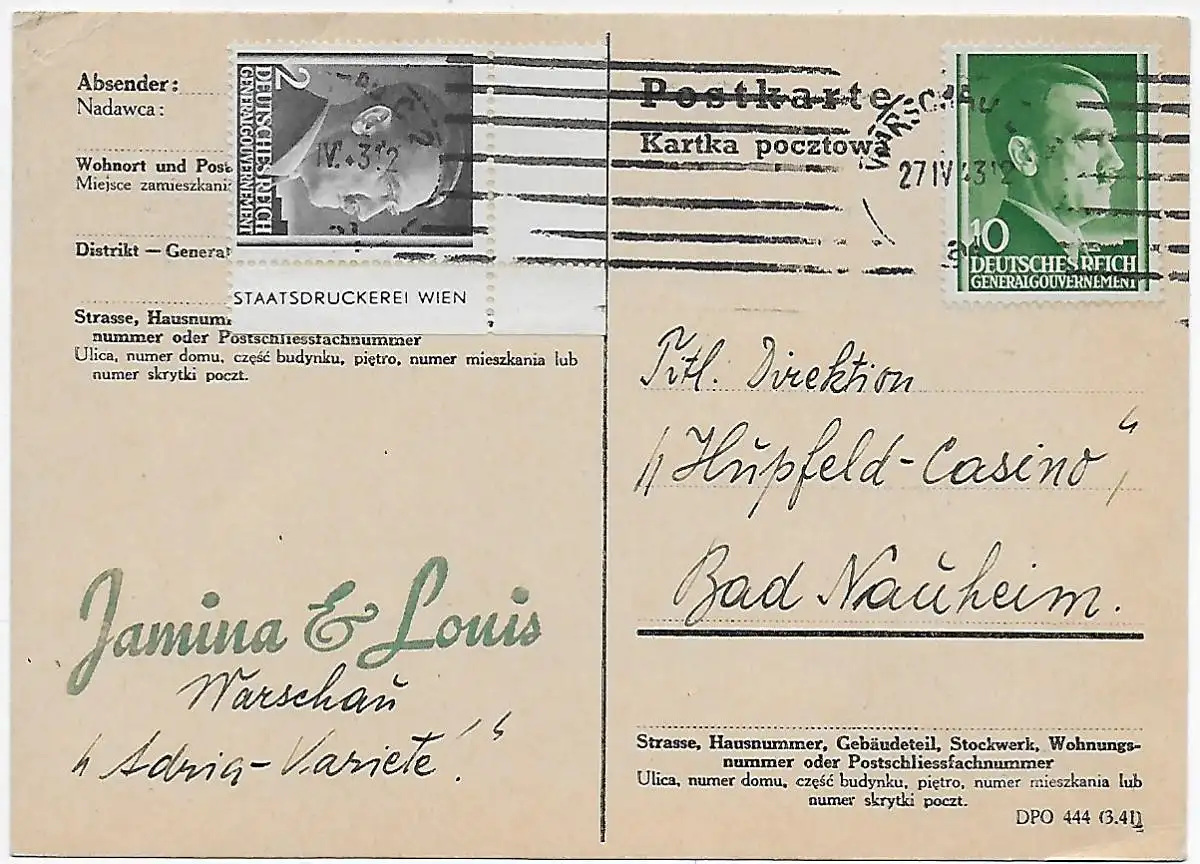 Absender:
Nadawca:
Wohnort und Post
Miejsce zamieszkani
Distrikt — General
Strasse, Hausnum
nummer oder Postschliessfachnummer
Ulica, numer domu, część budynku, piętro, numer mieszkania lub
numer skrytki poczt.
2
DEUTSCHES REICH
GENERALGOUVERNEMENT
IV. 43 12
STAATSDRUCKEREI WIEN
Jamina & Louis
Warschau
"Adria-Variete!"
Postkarte
Kartka pocztowa
WARSCHAU
27 IV 43 12
10
DEUTSCHES REICH
GENERALGOUVERNEMENT
Titl. Direktion
"Hupfeld-Casino",
Bad Nauheim.
Strasse, Hausnummer, Gebäudeteil, Stockwerk, Wohnungs-
nummer oder Postschliessfachnummer
Ulica, numer domu, część budynku, piętro, numer mieszkania lub
numer skrytki poczt.
DPO 444 (3.41)